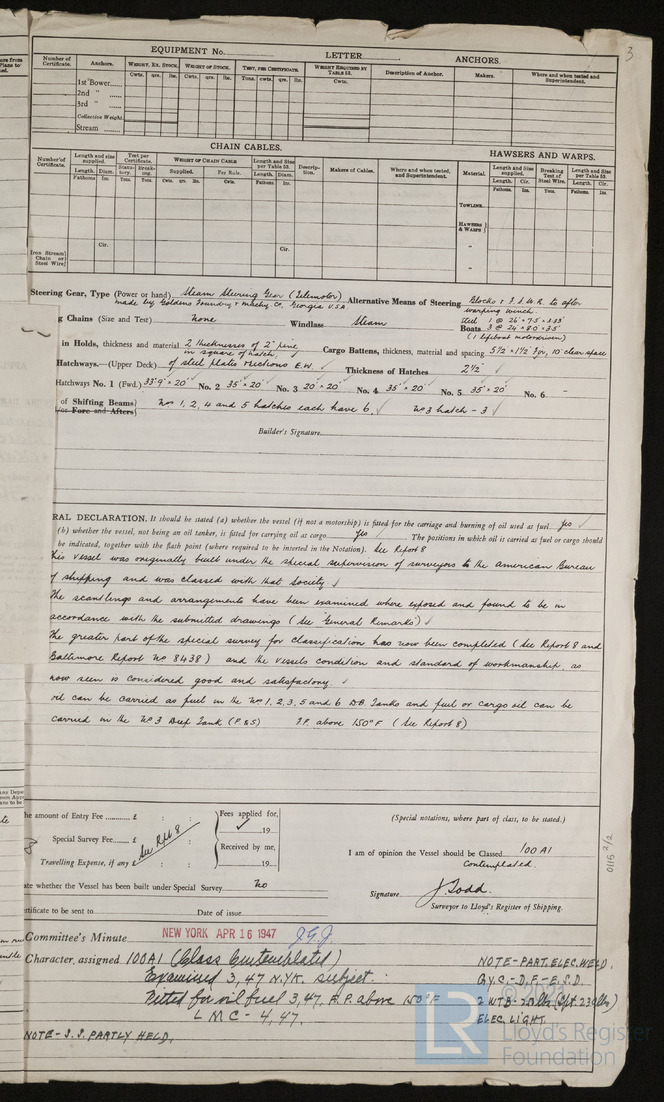 3
EQUIPMENT No. LETTER ANCHORS.
Number of Certificate. Anchors. WEIGHT, EX. STOCK. WEIGHT OF STOCK. TEST, PER CERTIFICATE. WEIGHT REQUIRED BY TABLE 53. Description of Anchor. Makers. Where and when tested and Superintendent.
Cwts. qrs. lbs. Cwts. qrs. lbs. Tons. cwts. qrs. lbs. Cwts.
1st Bower
2nd "
3rd "
Collective Weight.
Stream
CHAIN CABLES. HAWSERS AND WARPS.
Number of Certificate. Length and size supplied. Test per Certificate. WEIGHT OF CHAIN CABLE Length and Size per Table 53. Description. Makers of Cables. Where and when tested, and Superintendent. Material. Length and Size supplied. Breaking Test of Steel Wire. Length and Size per Table 53.
Length. Diam. Statutory. Breaking. Supplied. Per Rule. Length. Diam. Length. Cir. Length. Cir.
Fathoms Ins. Tons. Tons. Cwts. qrs. lbs. Cwts. Fathoms. Ins. Fathoms. Ins. Tons. Fathoms. Ins.
TOWLINE
HAWSERS & WARPS
"
"
Cir. Cir.
Iron Stream Chain or Steel Wire
Steering Gear, Type (Power or hand) Steam Steering Gear (Telemotor) made by Goldens Foundry & Machy. Co. Georgia U.S.A. Alternative Means of Steering Blocks & F.S.W.R. to after warping winch.
g Chains (Size and Test) None Windlass Steam Boats steel 1 @ 26' × 7.5 × 3.33' 3 @ 24' × 8.0' × 3.5' (1 lifeboat motordriven)
in Holds, thickness and material 2 thicknesses of 2" pine in square of hatch. Cargo Battens, thickness, material and spacing 5½ × 1½" 10" clear space
Hatchways.—(Upper Deck) of steel plates & sections E.W. Thickness of Hatches 2½"
Hatchways No. 1 (Fwd.) 33'9" × 20' No. 2 35' × 20' No. 3 20' × 20' No. 4 35' × 20' No. 5 35' × 20' No. 6 -
of Shifting Beams or Fore and Afters No's 1, 2, 4 and 5 hatches each have 6. No 3 hatch - 3
Builder's Signature
RAL DECLARATION. It should be stated (a) whether the vessel (if not a motorship) is fitted for the carriage and burning of oil used as fuel yes
(b) whether the vessel, not being an oil tanker, is fitted for carrying oil as cargo yes. The positions in which oil is carried as fuel or cargo should
be indicated, together with the flash point (where required to be inserted in the Notation). See Report 8
This vessel was originally built under the special supervision of surveyors to the American Bureau
of shipping and was classed with that Society.
The scantlings and arrangements have been examined where exposed and found to be in
accordance with the submitted drawings (See "General Remarks")
The greater part of the special survey for classification has now been completed (See Report 8 and
Baltimore Report No 8438) and the vessels condition and standard of workmanship, as
now seen is considered good and satisfactory.
oil can be carried as fuel in the No 1, 2, 3, 5 and 6 D.B. Tanks and fuel or cargo oil can be
carried in the No 3 Deep Tank (P & S) F.P. above 150°F (See Report 8)
he amount of Entry Fee £ : : Fees applied for, 19
Special Survey Fee £ : : See Rpt 8 Received by me, 19
Travelling Expense, if any £ : :
(Special notations, where part of class, to be stated.)
I am of opinion the Vessel should be Classed 100 A1
Contemplated.
ate whether the Vessel has been built under Special Survey No
Signature J. Todd.
Surveyor to Lloyd's Register of Shipping.
rtificate to be sent to Date of issue
0115 2/2
Committee's Minute NEW YORK APR 16 1947
Character, assigned 100A1 (Class Contemplated)
Examined 3,47 N.YK. subject.
Fitted for oil fuel 3,47. F.P. above 150°F
L M C - 4,47.
NOTE - PART. ELEC. WELD.
GY.C. - D.F. - E.S.D.
ELEC. LIGHT.
NOTE - S.S. PARTLY HELD.
LR
Lloyd's Register
Foundation